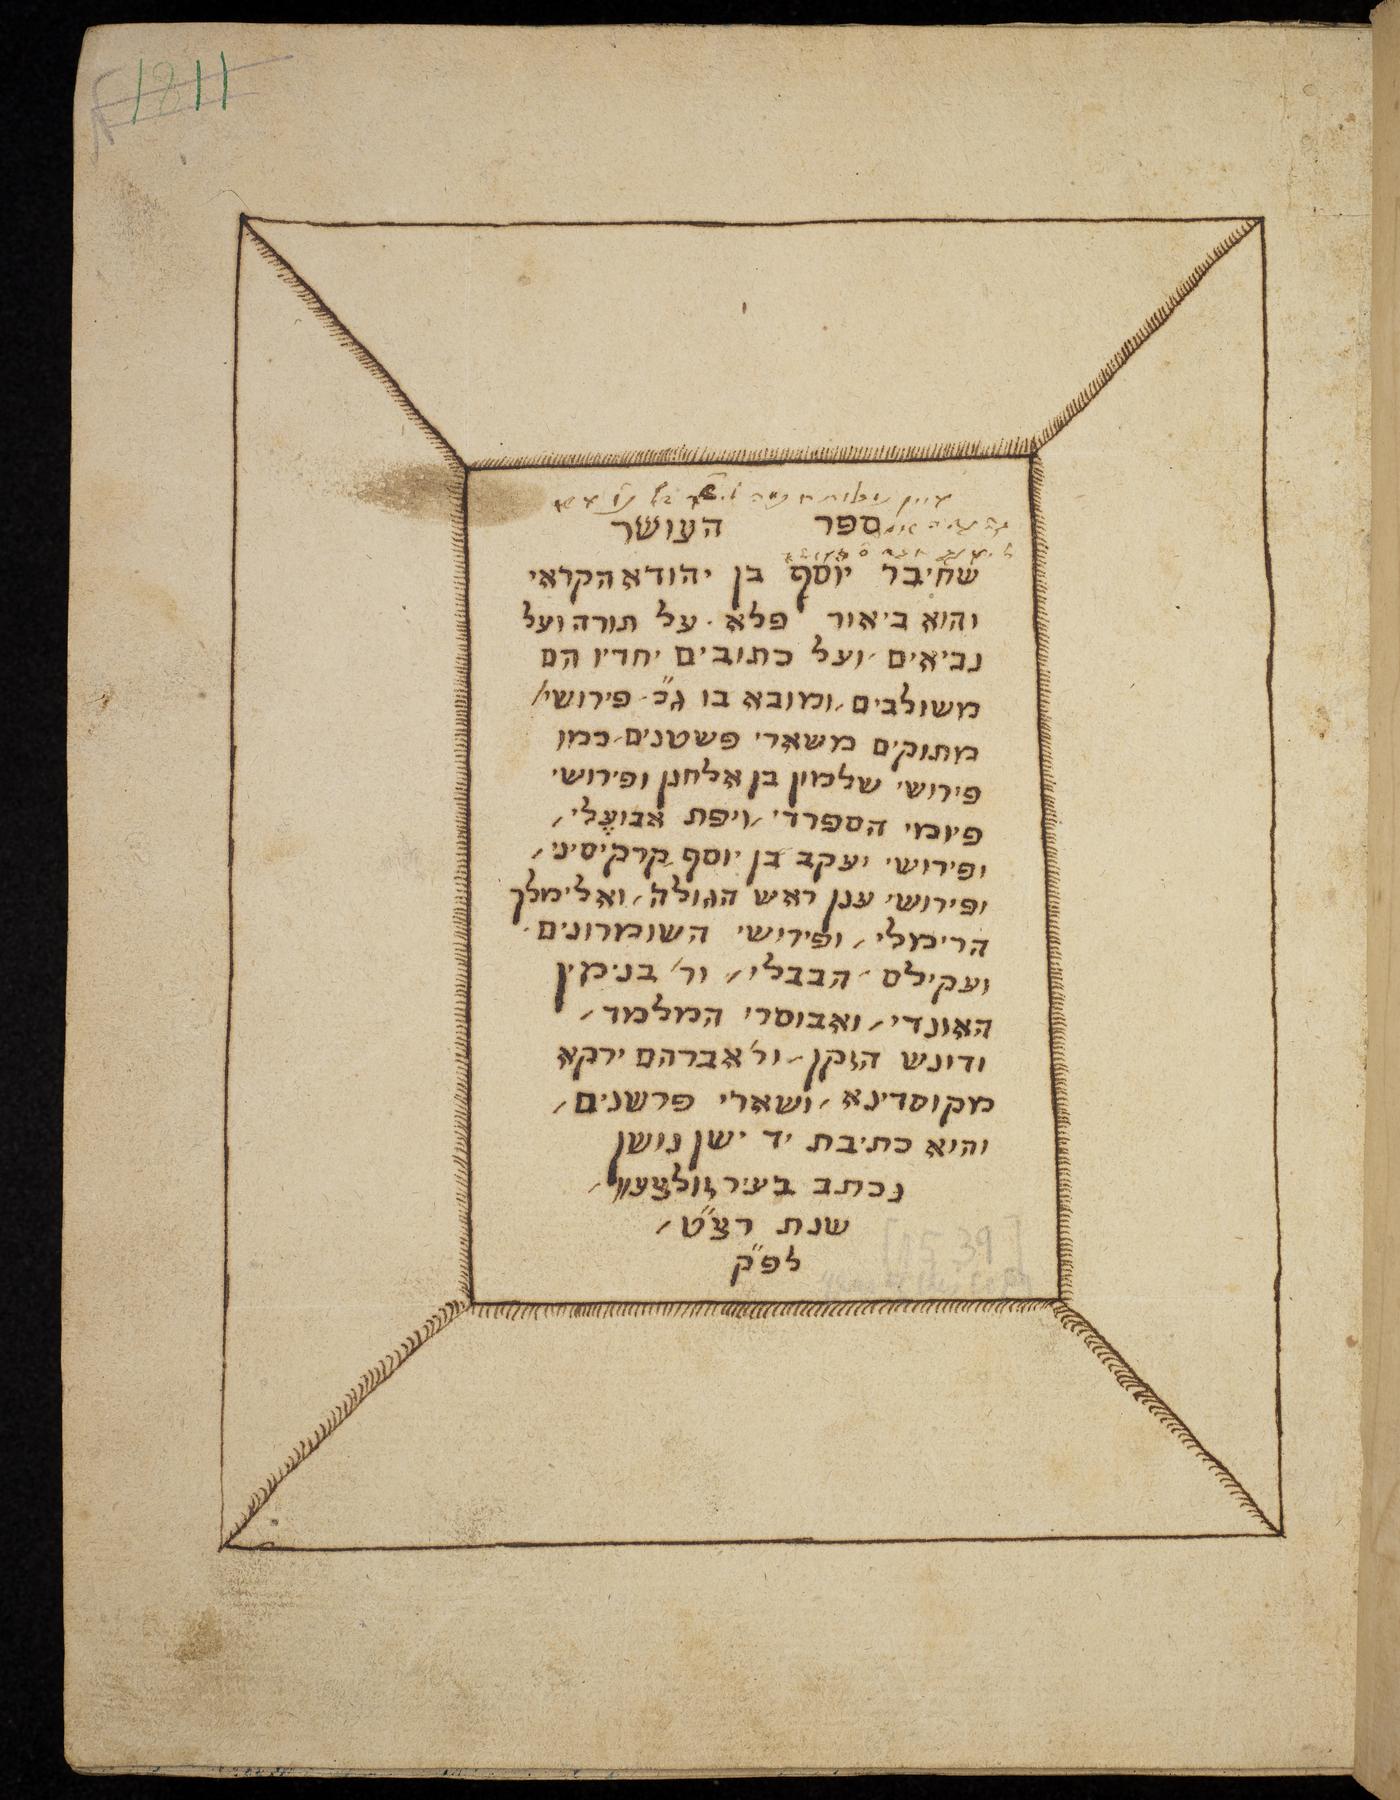 1811
ספר העושר
שחיבר יוסף בן יהודא הקראי
והוא ביאור פלא על תורה ועל
נביאים ועל כתובים יחדיו הם
משולבים, ומובא בו ג״כ פירושי
מתוקים משארי פשטנים כמו
פירושי שלמון בן אלחנן ופירושי
פיומי הספרדי, ויפת אבועלי,
ופירושי יעקב בן יוסף קרקיסיני,
ופירושי ענן ראש הגולה, ואלימלך
הרימלי, ופירושי השומרונים
ועקילס הבבלי, ור׳ בנימין
האונדי, ואבוסרי המלמד,
ודונש הזקן, ור׳ אברהם ירקא
מקוסדינא, ושארי פרשנים,
והיא כתיבת יד ישן נושן
נכתב בעיר
שנת רצ״ט,
[1539]
לפ״ק